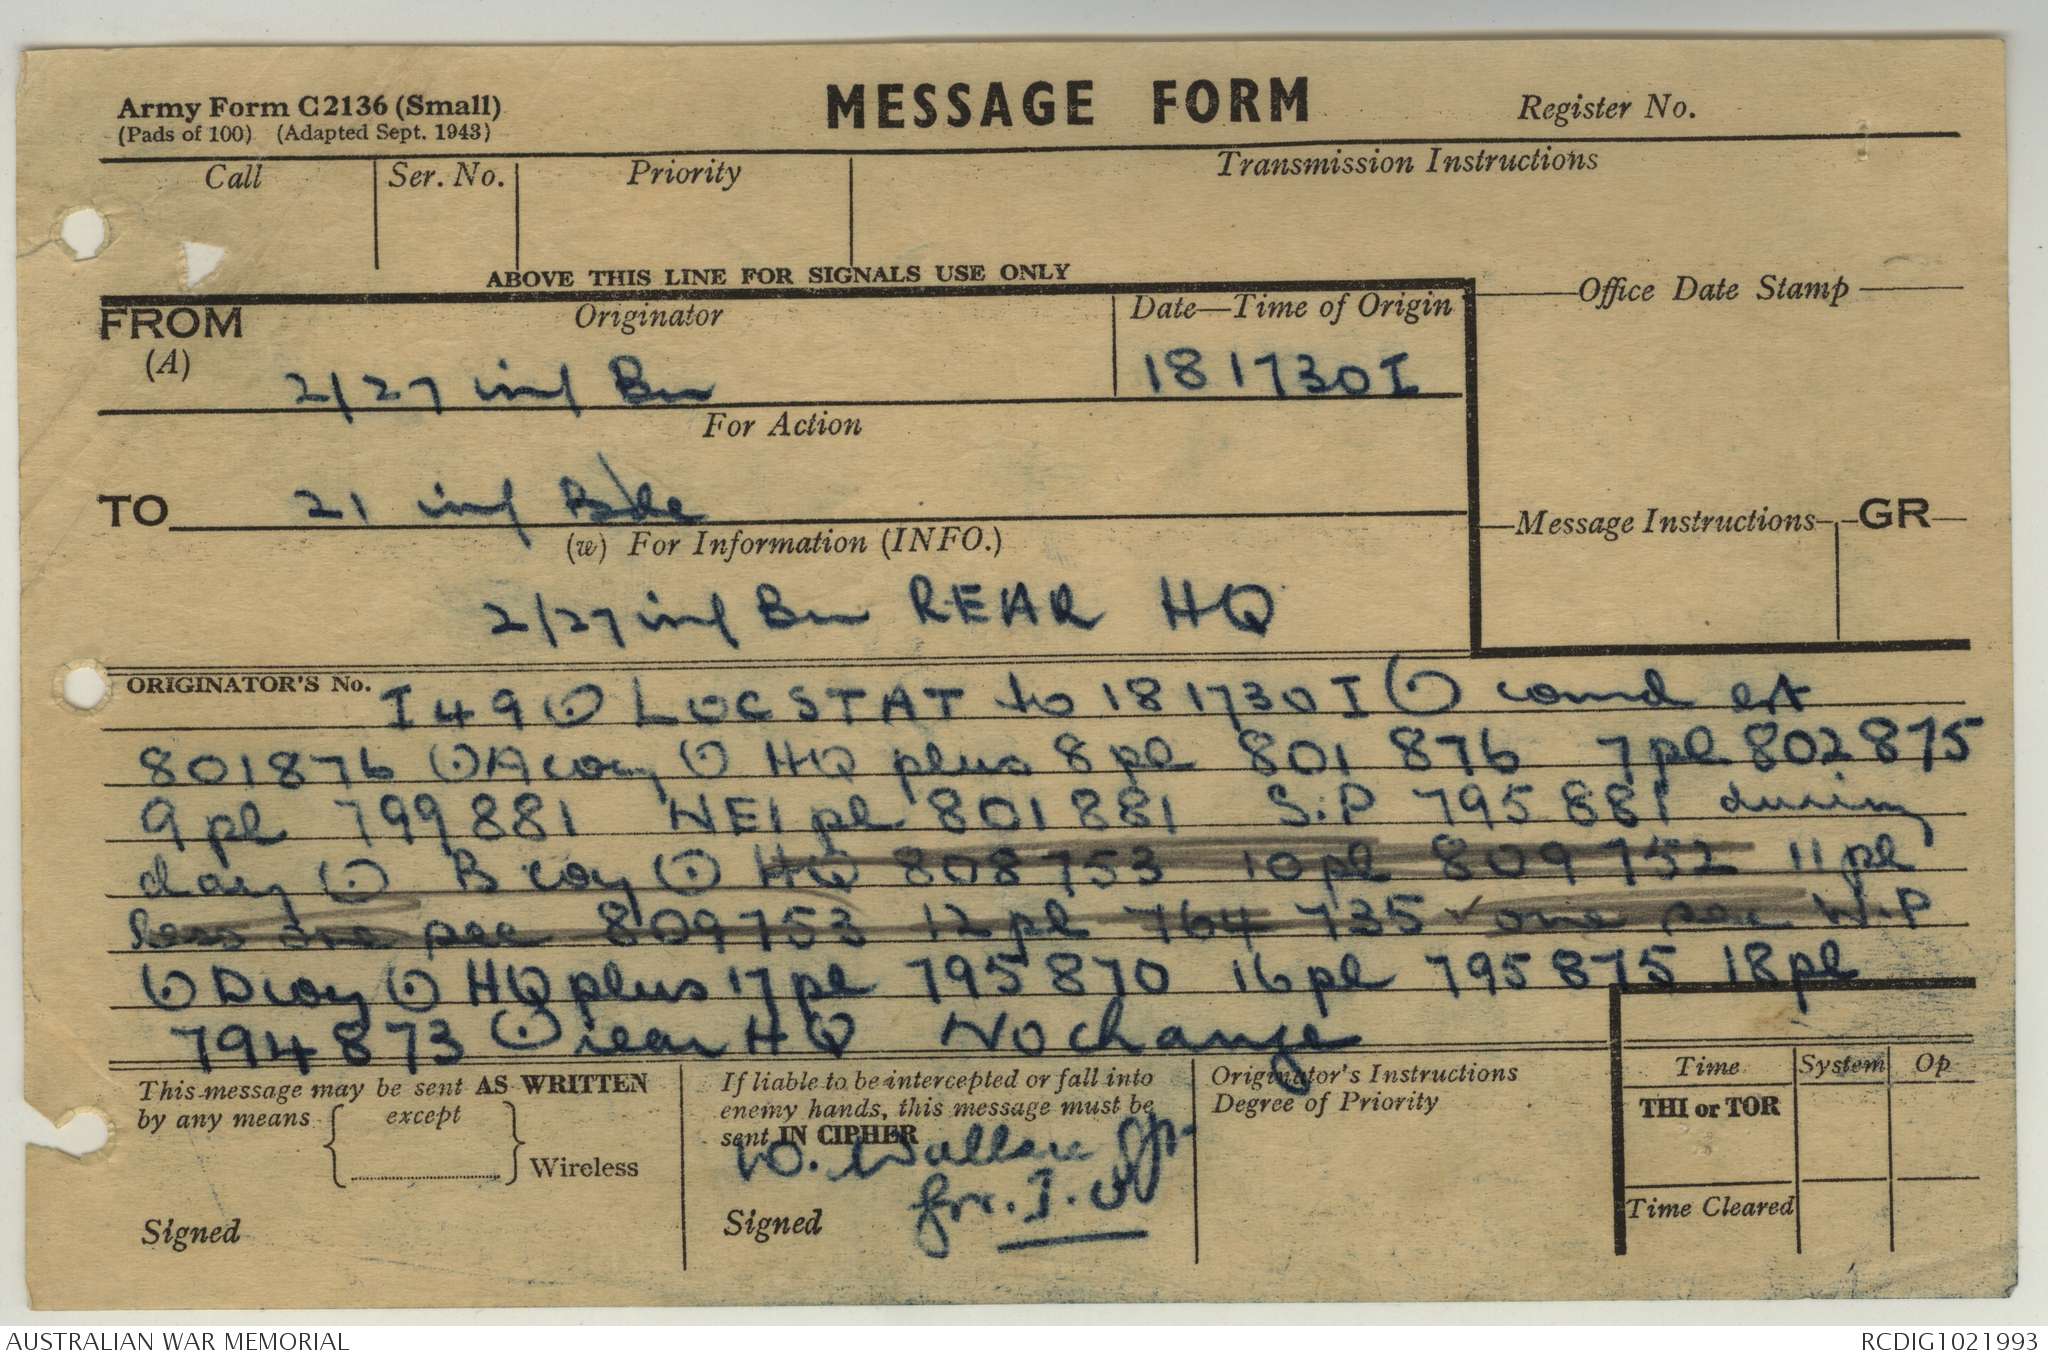 Army Form C2136 (Small)
(Pads of 100) (Adapted Sept. 1943)
MESSAGE FORM
Register No.
Call
Ser. No.
Priority
Transmission Instructions
ABOVE THIS LINE FOR SIGNALS USE ONLY
Office Date Stamp
FROM
(A)
Originator
Date—Time of Origin
2/27 inf Bn
181730I
For Action
TO
21 inf Bde
Message Instructions
GR
(w) For Information (INFO.)
2/27 inf Bn REAR HQ
ORIGINATOR'S No.
I 49 ⊙ LOCSTAT to 181730I ⊙ comd
801876 ⊙ A coy ⊙ HQ plus 8 pl 801 876 7 pl 802875
9 pl 799881 NEI pl 801881 S.P 795881 during
day ⊙ B coy ⊙ HQ 808753 10 pl 809752 11 pl
less one sec 809753 12 pl 764 735 one sec W.P
⊙ D coy ⊙ HQ plus 17 pl 795870 16 pl 795875 18 pl
794873 ⊙ rear HQ No change
This message may be sent AS WRITTEN
by any means
except
Wireless
Signed
If liable to be intercepted or fall into
enemy hands, this message must be
sent IN CIPHER
W. Wallace
for. I.O
Signed
Originator's Instructions
Degree of Priority
Time
System
Op
THI or TOR
Time Cleared
AUSTRALIAN WAR MEMORIAL
RCDIG1021993